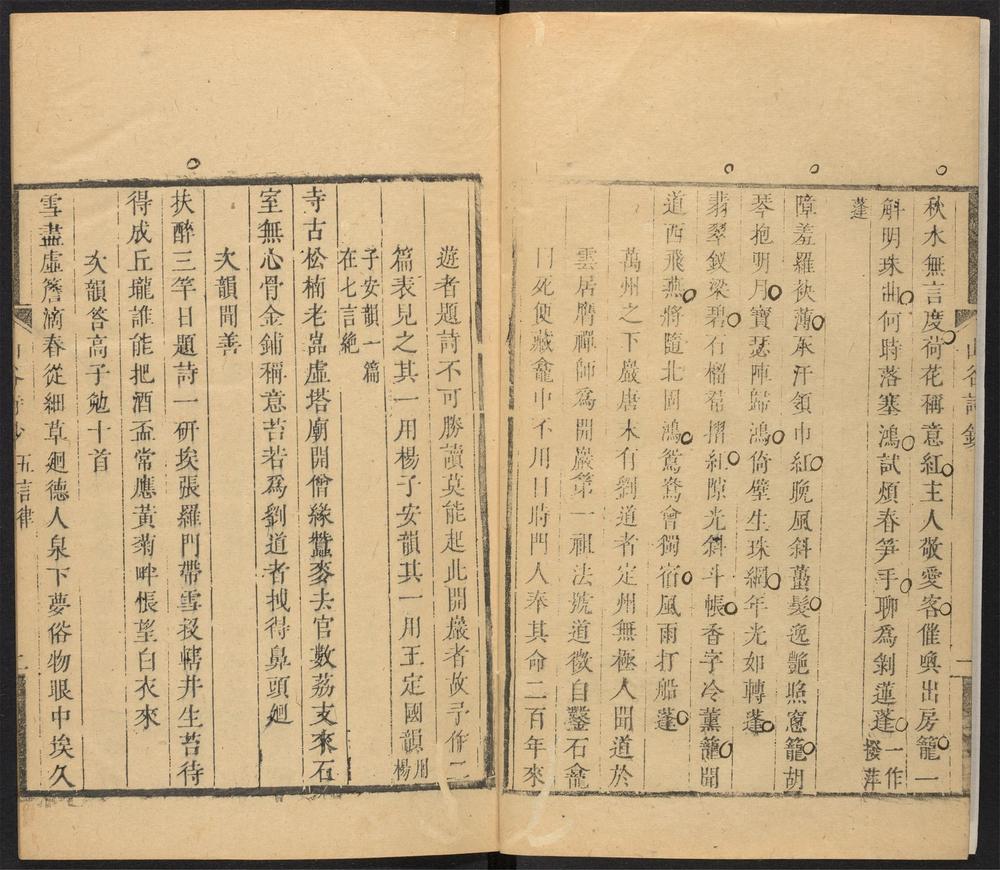 秋水無言度荷花稱意紅主人敬愛客催喚出房籠一
斛明珠曲何時落塞鴻試煩春笋手聊爲剝蓮蓬一作撥萍
蓬
障羞羅袂薄承汗領巾紅晚風斜蠆髮逸艷照窻籠胡
琴抱明月寶瑟陣歸鴻倚壁生珠網年光如轉蓬
翡翠釵梁碧石榴帬摺紅隙光斜斗帳香字冷薰籠聞
道西飛燕將隨北固鴻鴛鴦會獨宿風雨打船蓬
萬州之下巖唐末有劉道者定州無極人聞道於
雲居膺禪師爲開巖第一祖法號道微自鑿石龕
曰死便藏龕中不用日時門人奉其命二百年來
遊者題詩不可勝讀莫能起此開巖者故予作二
篇表見之其一用楊子安韻其一用王定國韻用楊
子安韻一篇
在七言絶
寺古松楠老嵓虛塔廟開僧緣蠶麥去官數荔支來石
室無心骨金鋪稱意苔若爲劉道者拽得鼻頭廻
次韻聞善
扶醉三竿日題詩一研埃張羅門帶雪投轄井生苔待
得成丘壠誰能把酒盃常應黃菊畔悵望白衣來
次韻答高子勉十首
山谷詩鈔 五言律
雪盡虛簷滴春從細草廻德人泉下夢俗物眼中埃久